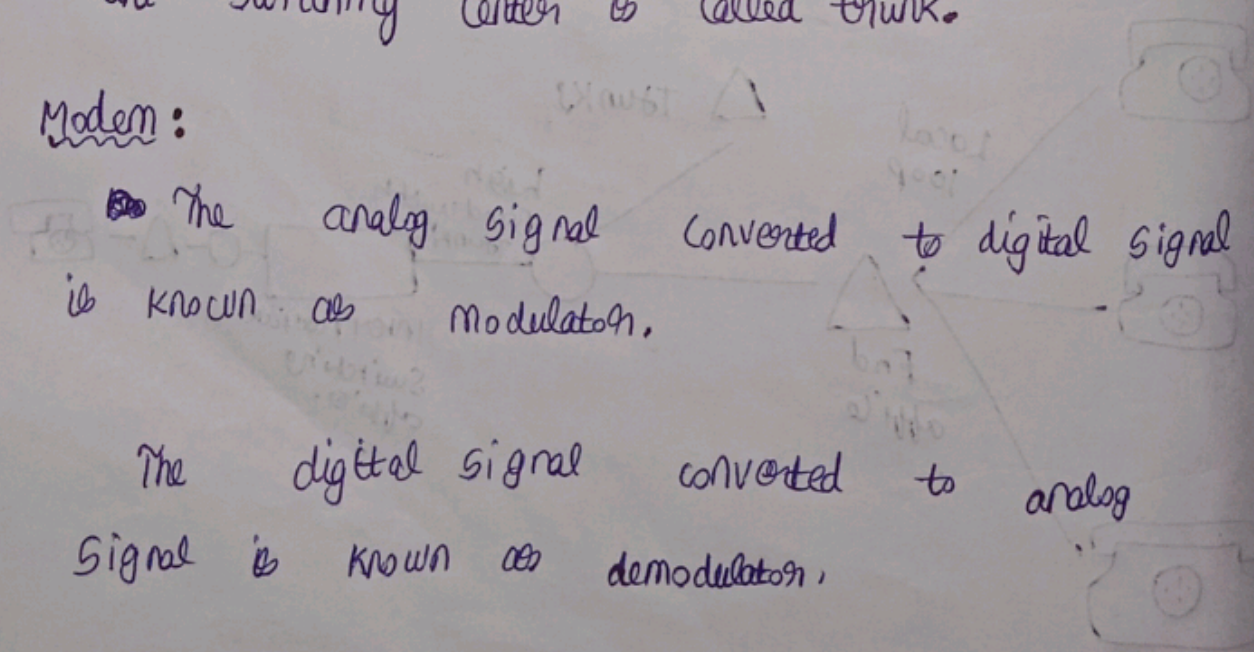 switching center is called trunk.
Modem:
The analog signal converted to digital signal
is known as modulator.
The digital signal converted to analog
signal is known as demodulator.